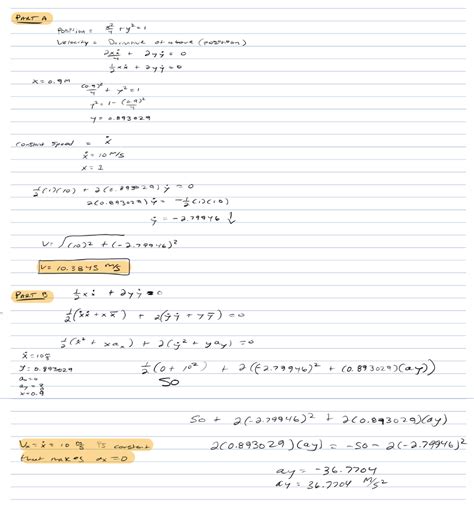 PART A
Position = x²/4 + y² = 1
Velocity = Derivative of above (position)
2xẋ/4 + 2yẏ = 0
½xẋ + 2yẏ = 0
x = 0.9 M
(0.9)²/4 + y² = 1
y² = 1 - (0.9)²/4
y = 0.893029
constant speed = ẋ
ẋ = 10 m/s
x = 1
½(1)(10) + 2(0.893029)ẏ = 0
2(0.893029)ẏ = -½(1)(10)
ẏ = -2.79946 ↓
V = √(10)² + (-2.79946)²
V = 10.3845 m/s
PART B ½xẋ + 2yẏ = 0
½(ẋẋ + xẍ) + 2(ẏẏ + yÿ) = 0
½(ẋ² + xaₓ) + 2(ẏ² + yay) = 0
ẋ = 10
y = 0.893029
aₓ = 0
ay = ?
x = 0.9
½(0 + 10²) + 2((-2.79946)² + (0.893029)(ay))
50
50 + 2(-2.79946)² + 2(0.893029)(ay)
Vₓ = ẋ = 10 m/s is constant
that makes aₓ = 0
2(0.893029)(ay) = -50 - 2(-2.79946)²
ay = -36.7704
ay = 36.7704 m/s²